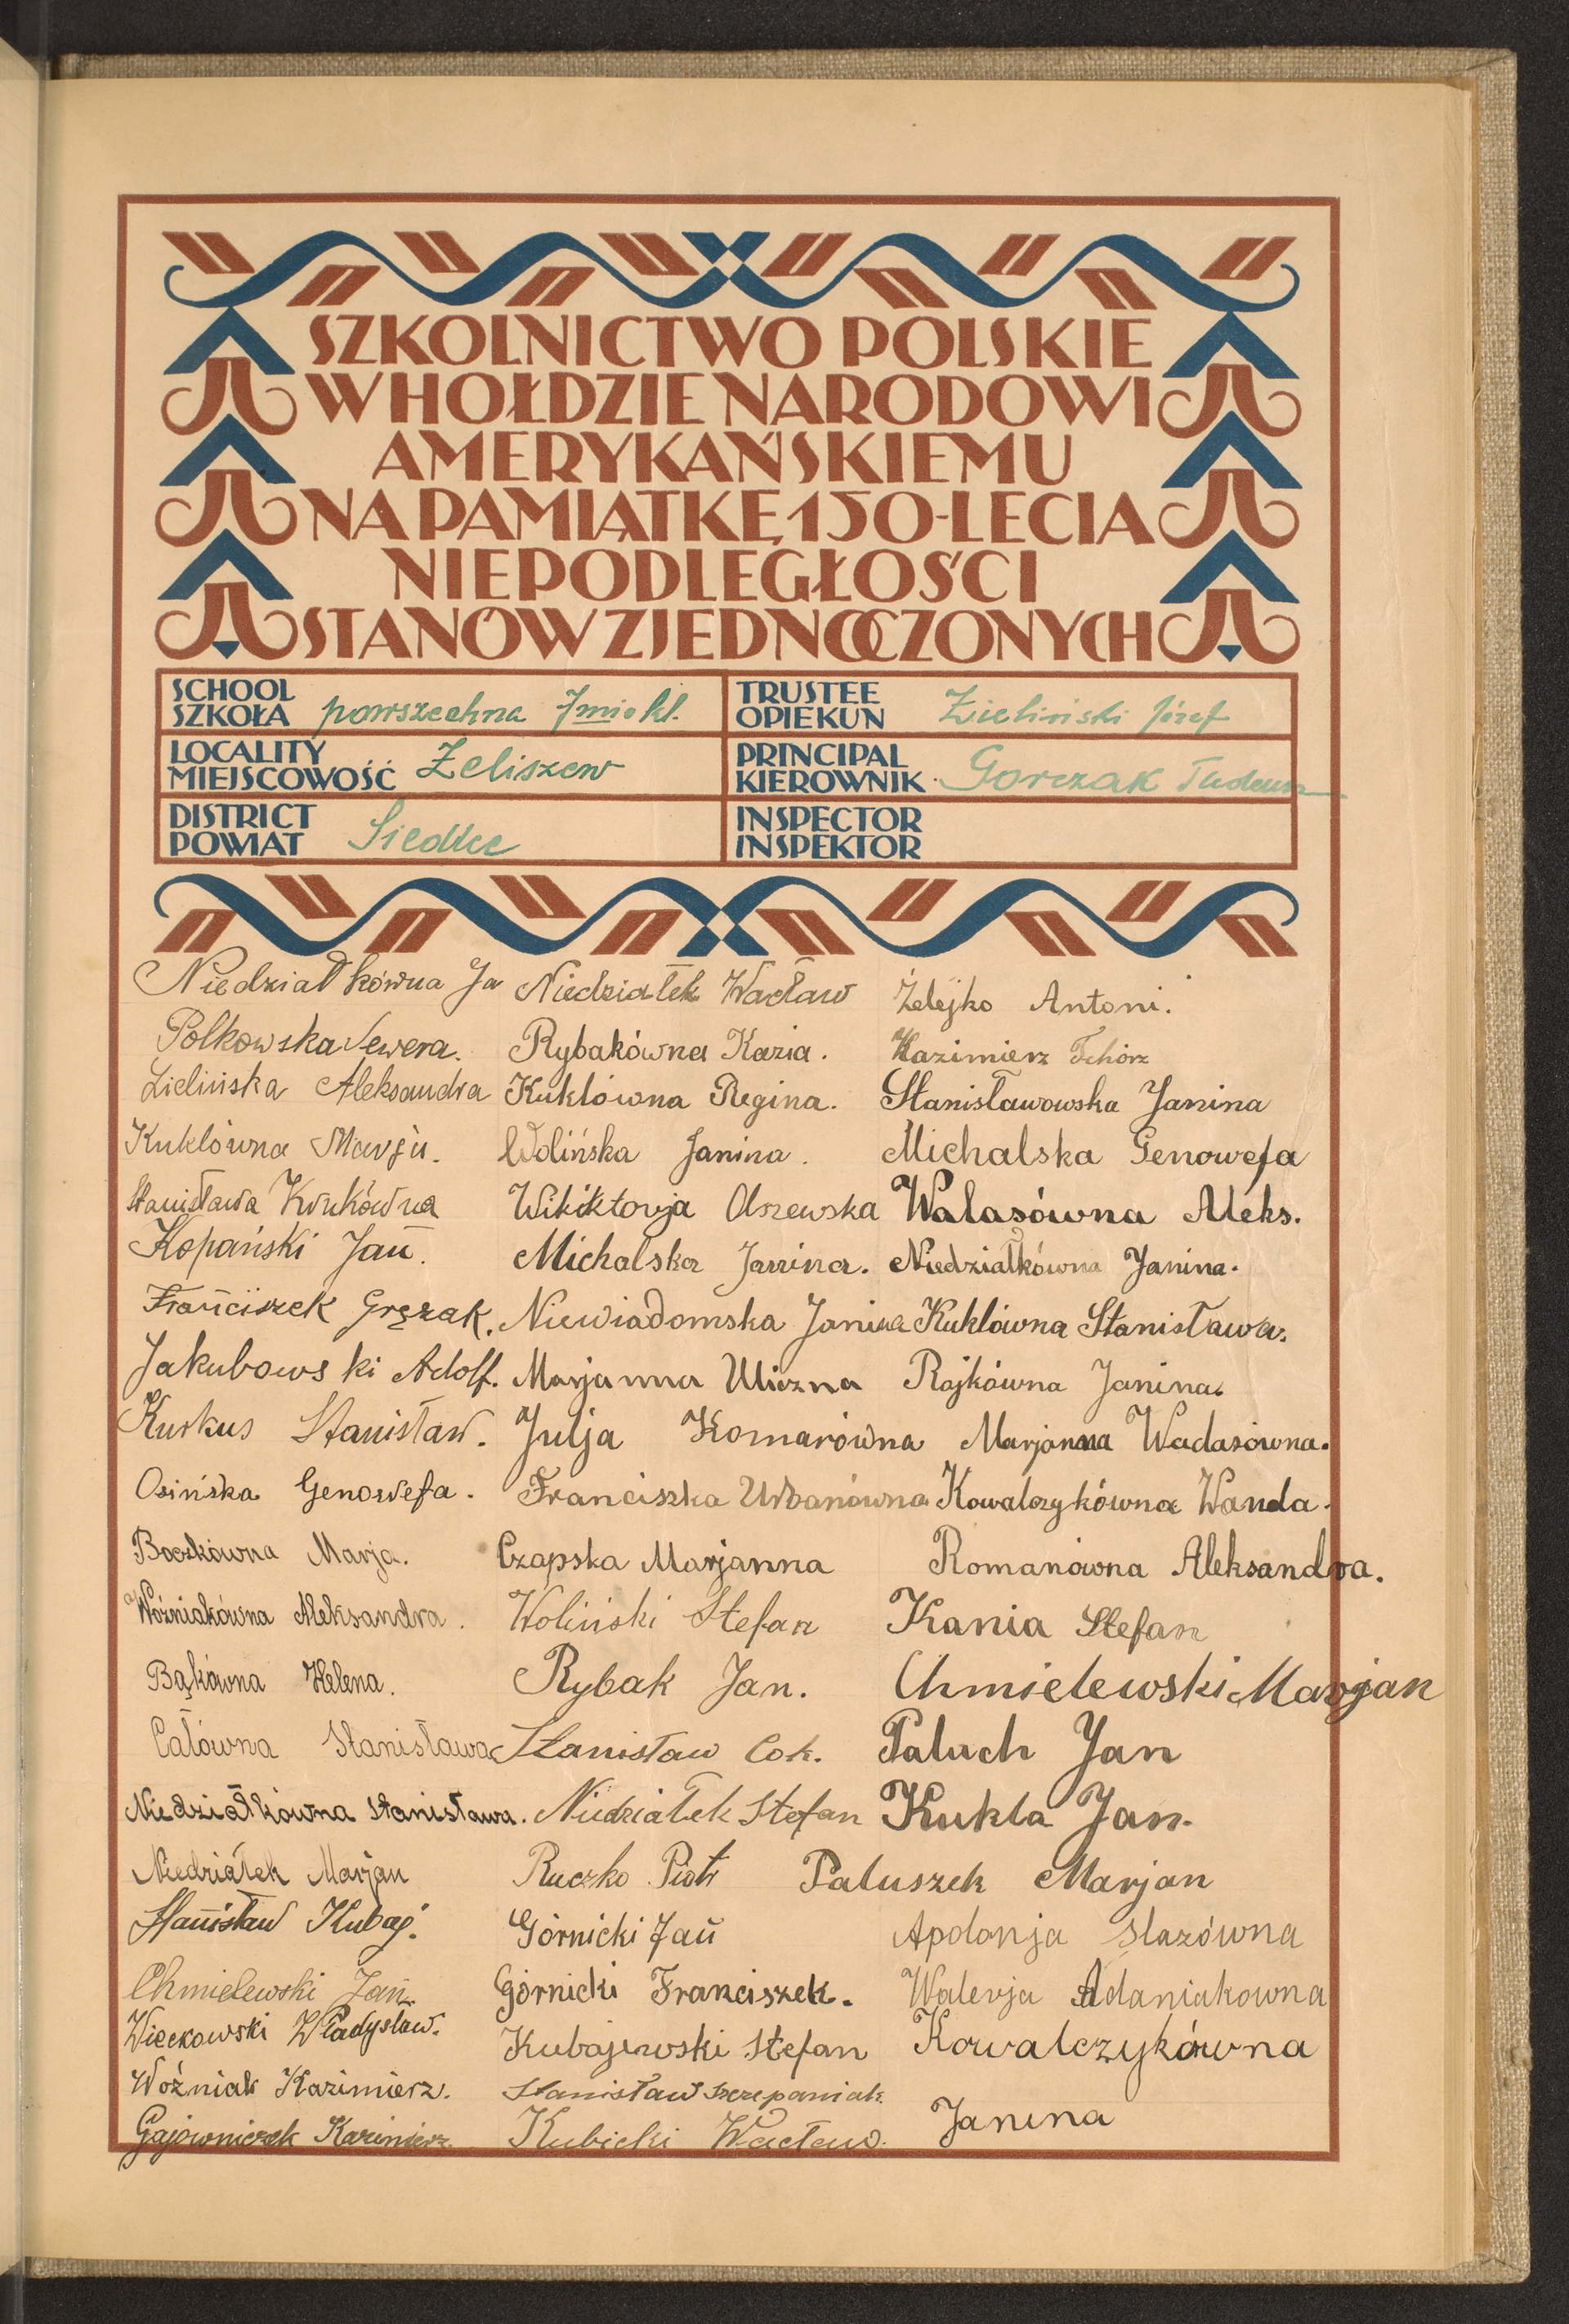 SZKOLNICTWO POLSKIE
W HOŁDZIE NARODOWI
AMERYKAŃSKIEMU
NA PAMIĄTKĘ 150-LECIA
NIEPODLEGŁOŚCI
STANÓW ZJEDNOCZONYCH
SCHOOL
SZKOŁA powszechna 7mio kl.
LOCALITY
MIEJSCOWOŚĆ Żeliszew
DISTRICT
POWIAT Siedlce
TRUSTEE
OPIEKUN Zieliński Józef
PRINCIPAL
KIEROWNIK Gorczak Tadeusz
INSPECTOR
INSPEKTOR
Niedziałkówna Ja
Polkowska Sewera.
Zielińska Aleksandra
Kuklówna Marja.
Stanisława
Kopański Jan.
Franciszek Gręzak.
Jakubowski Adolf.
Kurkus Stanisław.
Osińska Genowefa.
Boczkówna Marja.
Woźniakówna Aleksandra.
Bąkówna Helena.
Całówna Stanisława
Niedziałkówna Stanisława.
Niedziałek Marjan
Stanisław Kubaj.
Chmielewski Jan.
Wieckowski Władysław.
Woźniak Kazimierz.
Gajowniczek Kazimierz
Niedziałek Wacław
Rybakówna Kazia.
Kuklówna Regina.
Wolińska Janina.
Wikiktorja Olszewska
Michalska Janina.
Niewiadomska Janina
Marjanna Uliczna
Julja Komarówna
Franciszka Urbanówna
Czapska Marjanna
Woliński Stefan
Rybak Jan.
Stanisław Cok.
Niedziałek Stefan
Ruczko Piotr
Górnicki Jan
Górnicki Franciszek.
Kubajewski Stefan
Stanisław Szczepaniak.
Kubicki Wacław.
Żelejko Antoni.
Kazimierz Tchórz
Stanisławowska Janina
Michalska Genowefa
Walasówna Aleks.
Niedziałkówna Janina.
Kuklówna Stanisława.
Rojkówna Janina.
Marjanna Wadasówna.
Kowalczykówna Wanda.
Romanówna Aleksandra.
Kania Stefan
Chmielewski Marjan
Paluch Jan
Kukla Jan.
Paluszek Marjan
Apolonja Slazówna
Walerja Adaniakowna
Kowalczykówna
Janina